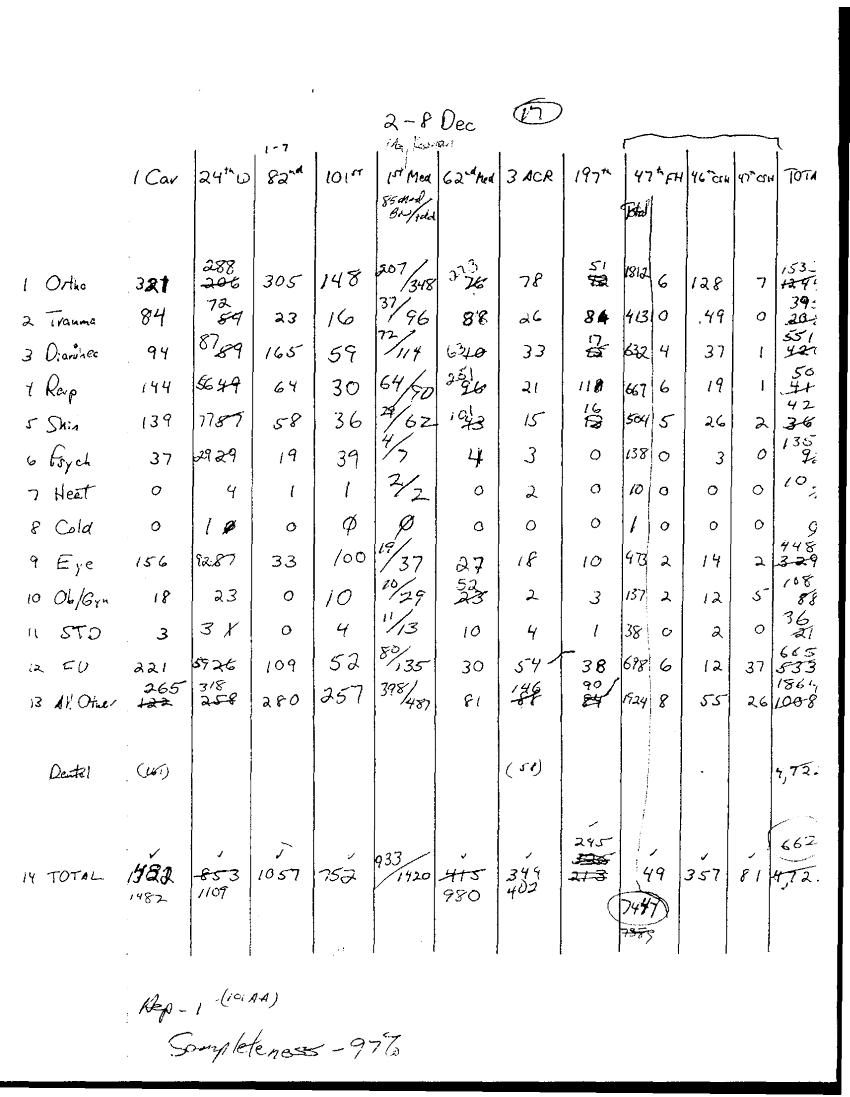 2-8 Dec 17
1-7
1 Cav 24th ID 82nd 101st 1st Med 62nd Med 3 ACR 197th 47th FH 46th CSH 47th CSH TOTA
85 Med Total
BN/
288 207/348 273 51 153
1 Ortho 321 206 305 148 76 78 1812 6 128 7
72 37/96 39
2 Trauma 84 59 23 16 88 26 84 413 0 49 0
72/114 17 551
3 Diarrhea 94 8789 165 59 6340 33 632 4 37 1 427
251 50
4 Resp 144 5649 64 30 64/90 96 21 118 667 6 19 1 41
29/62 101 16 42
5 Skin 139 7787 58 36 43 15 12 504 5 26 2 36
4/7 135
6 Psych 37 2929 19 39 4 3 0 138 0 3 0 9
7 Heat 0 4 1 1 2/2 0 2 0 10 0 0 0 10
8 Cold 0 1 0 0 Ø Ø 0 0 0 1 0 0 0 9
19/37 448
9 Eye 156 9287 33 100 27 18 10 473 2 14 2 329
20/29 52 108
10 Ob/Gyn 18 23 0 10 23 2 3 137 2 12 5 88
11/13 36
11 STD 3 3 X 0 4 10 4 1 38 0 2 0 21
80/135 665
12 FU 221 5926 109 52 30 54 38 698 6 12 37 533
265 318 398/487 146 90 1864
13 All Other 122 258 280 257 81 88 84 1924 8 55 26 1008
Dental (161) (58) 4,72
245
933/1420 662
14 TOTAL 1482 853 1057 752 415 349 213 49 357 81 4,72
1482 1109 980 402 7447
7389
Rep - 1 (101 AA)
Completeness - 97%